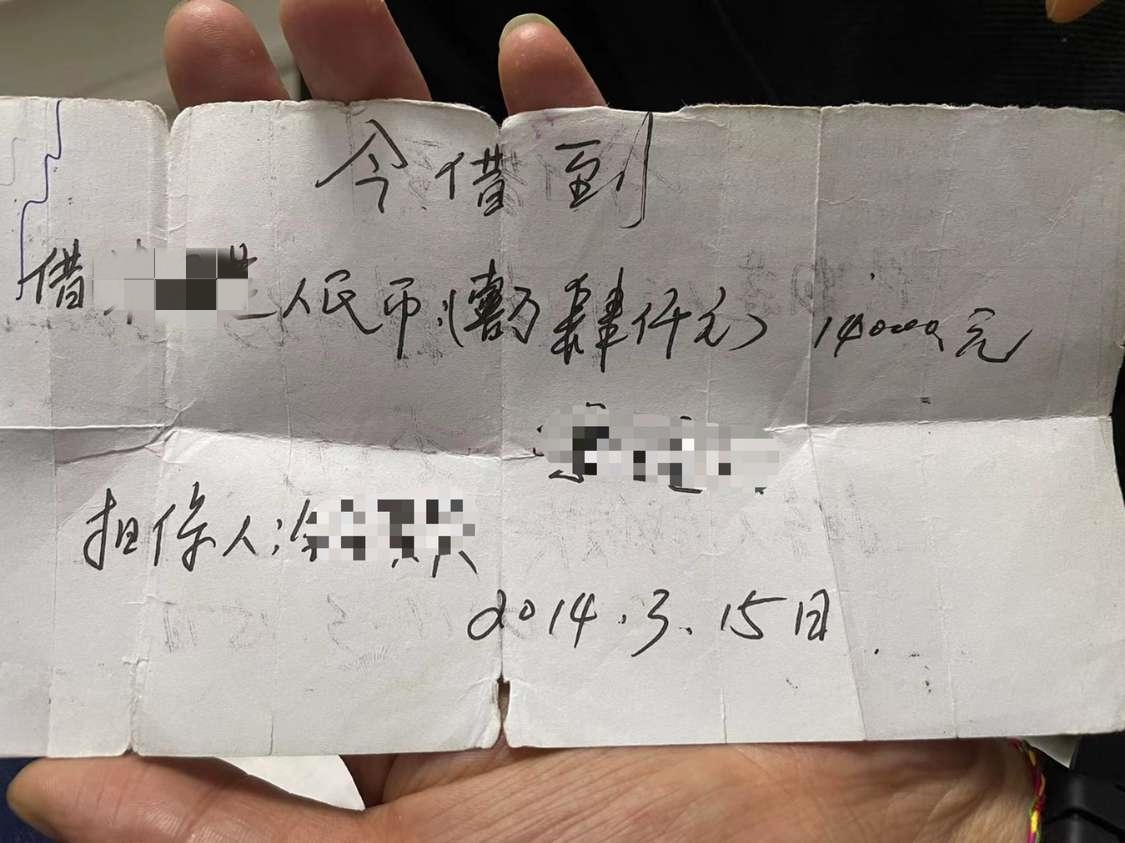 今借到
借 人民币(壹万肆仟元) 14000元
担保人:涂
2014.3.15日